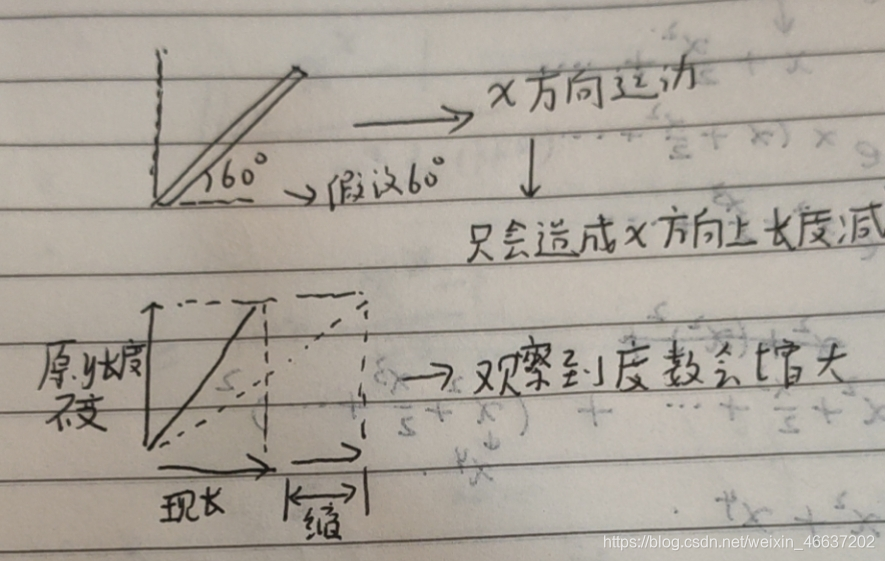 x方向运动
60°
假设60°
只会造成x方向上长度减
原y长度
不变
观察到度数会增大
现长
缩
https://blog.csdn.net/weixin_46637202